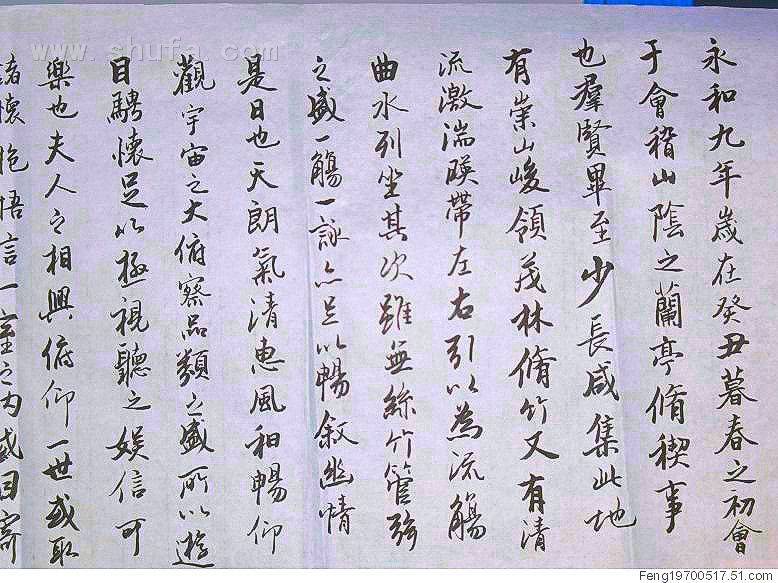 永和九年歲在癸丑暮春之初會
于會稽山陰之蘭亭脩稧事
也羣賢畢至少長咸集此地
有崇山峻領茂林脩竹又有清
流激湍暎帶左右引以為流觴
曲水列坐其次雖無絲竹管弦
之盛一觴一詠亦足以暢敘幽情
是日也天朗氣清惠風和暢仰
觀宇宙之大俯察品類之盛所以遊
目騁懷足以極視聽之娛信可
樂也夫人之相與俯仰一世或取
諸懷抱悟言一室之內或因寄
www.shufa.com
Feng19700517.51.com